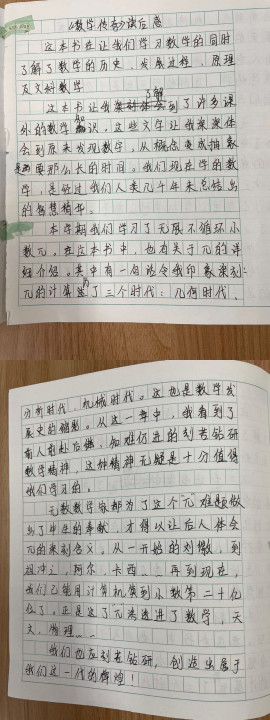 《数学传奇》读后感
这本书在让我们学习数学的同时
了解了数学的历史、发展过程、原理
及文科数学。
了解
这本书让我到了许多课
外的数学知识。这些文字让我深深体
会到原来发现数学,从概念变成抽象
是要那么长的时间。我们现在学的数
学,是经过我们人类几千年来总结出
的智慧精华。
本学期我们学习了无限不循环小
数π。在这本书中,也有关于π的详
细介绍。其中有一句话令我印象深刻:
π的计算经了三个时代:几何时代、
分析时代、机械时代。这也是数学发
展史的缩影。从这一章中,我看到了
前人前赴后继、知难仍进的刻苦钻研
数学精神,这种精神无疑是十分值得
我们学习的。
无数数学家都为了这个"π"难题做
出了毕生的奉献,才得以让后人体会
π的来到含义。从一开始的刘徽,到
祖冲之,阿尔·卡西……再到现在,
我们已能用计算机算到小数第二十亿
位了。正是这了π渗透进了数学,天
文,物理……
我们也应刻苦钻研,创造出属于
我们这一代的辉煌!